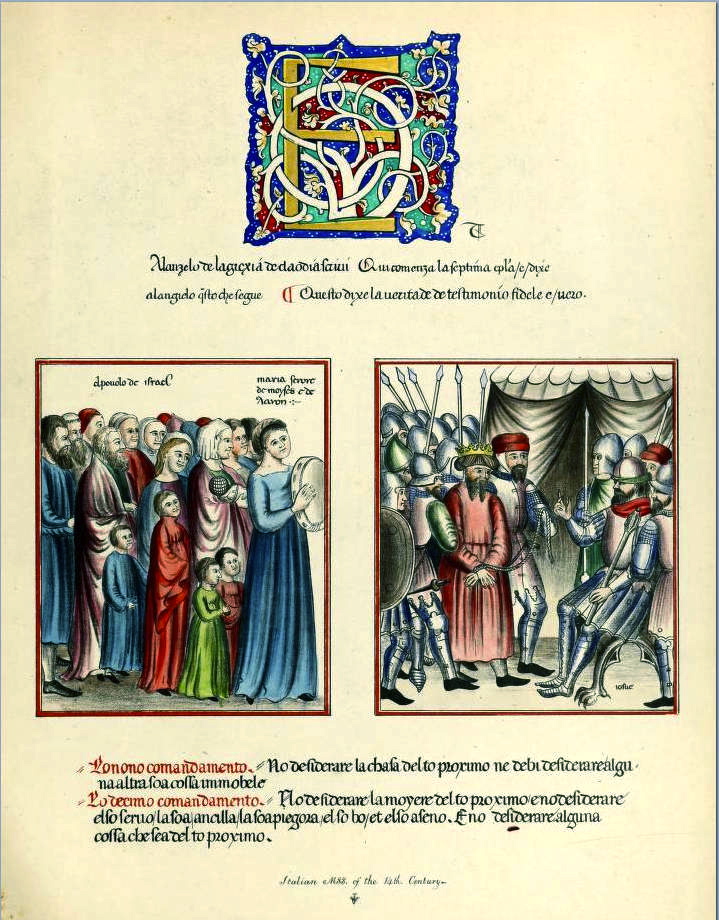 E
Alanzelo de la giexiá de claodia scrivi Qui comenza la septima epl'a/e/dixe
alangielo q̃sto che segue ¶ Questo dixe la uerita de de testimonio fidele e/uero.
elpouolo de israel
maria serore
de moyses e de
Aaron
iosue
Lo nono comandamento. No desiderare la chasa del to proximo ne debi desiderare algu
na altra soa cossa immobele
Lo decimo comandamento. No desiderare la moyere del to proximo/e no desiderare
el so seruo/la soa ancilla/la soa piegora/el so bo/et el so aseno. E no desiderare alguna
cossa che sea del to proximo.
Italian MSS. of the 14th Century.